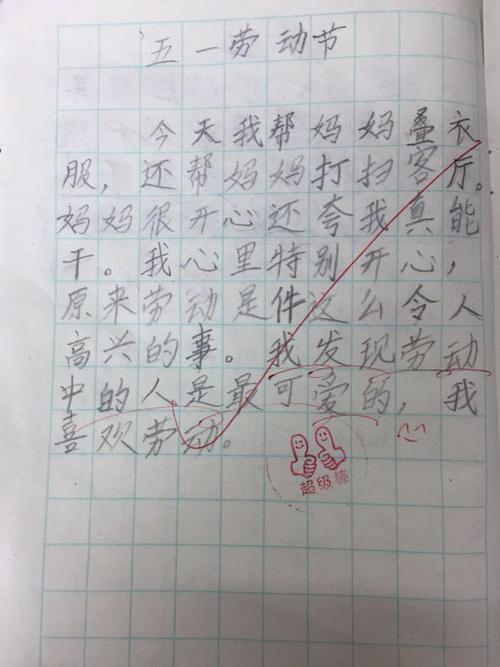 五一劳动节
今天我帮妈妈叠衣
服，还帮妈妈打扫客厅。
妈妈很开心还夸我真能
干。我心里特别开心，
原来劳动是件这么令人
高兴的事。我发现劳动
中的人是最可爱的，我
喜欢劳动。
超级棒